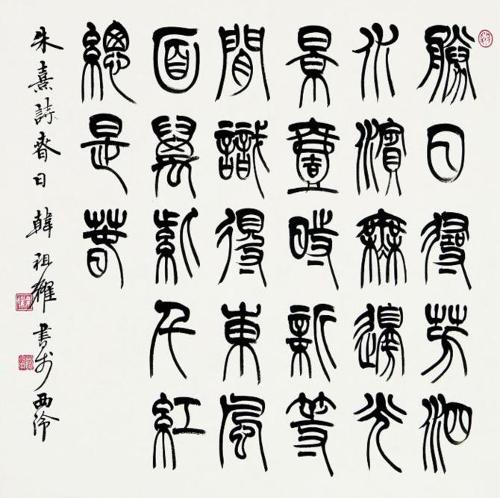 勝日尋芳泗
水濱無邊光
景壹時新等
閒識得東風
面萬紫千紅
總是春
朱熹詩春日 韓祖耀書於西泠